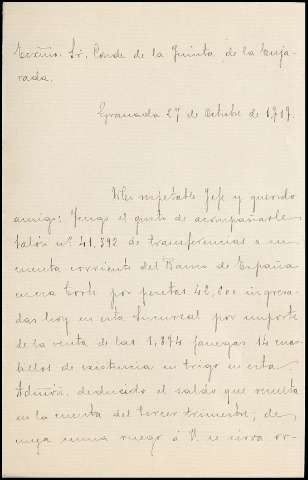 Excmo. Sr. Conde de la Quinta de la Enja-
rada.
Granada 27 de Octubre de 1919.
Mi respetable Jefe y querido
amigo: Tengo el gusto de acompañarle
talón nº 41,392 de transferencias a su
cuenta corriente del Banco de España
en esa Corte por pesetas 42,000 ingresa-
das hoy en esta Sucursal por importe
de la venta de las 1,894 fanegas 14 cuar-
tillos de existencia en trigo en esta
Admón. deducido el saldo que resulta
en la cuenta del tercer trimestre, de
cuya suma ruego á V. se sirva or-